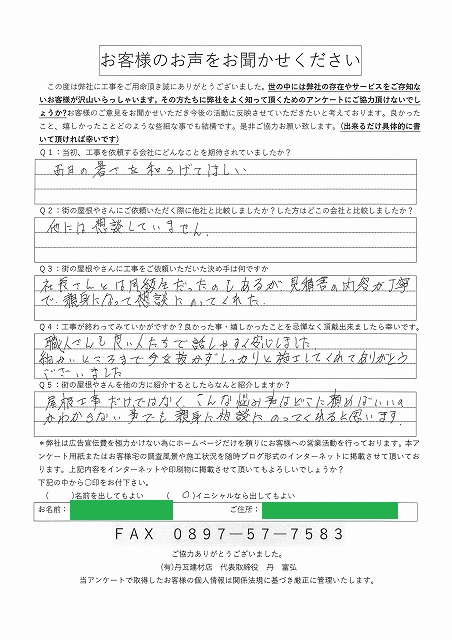 お客様のお声をお聞かせください
この度は弊社に工事をご用命頂き誠にありがとうございました。世の中には弊社の存在やサービスをご存知な
いお客様が沢山いらっしゃいます。その方たちに弊社をよく知って頂くためのアンケートにご協力頂けないでし
ょうか?お客様のご意見をお聞かせいただき今後の活動に反映させていただきたいと考えております。良かった
こと、嬉しかったことどのような些細な事でも結構です。是非ご協力お願い致します。（出来るだけ具体的に書
いて頂ければ幸いです）
Q１：当初、工事を依頼する会社にどんなことを期待されていましたか？
西日の暑さを和らげてほしい
Q２：街の屋根やさんにご依頼いただく際に他社と比較しましたか？した方はどこの会社と比較しましたか？
他には相談していません。
Q３：街の屋根やさんに工事をご依頼いただいた決め手は何ですか
社長さんとは同級生だったのもあるが見積書の内容が丁寧
で、親身になって相談にのってくれた。
Q４：工事が終わってみていかがですか？良かった事・嬉しかったことを忌憚なく頂戴出来ましたら幸いです。
職人さんも良い人たちで話しやすく安心しました
細かいところまで手を抜かずしっかりと施工してくれてありがとう
ございました
Q５：街の屋根やさんを他の方に紹介するとしたらなんと紹介しますか？
屋根工事だけではなく、こんな悩み事はどこに頼めばいいの
かわからない事でも親身に相談にのってくれると思います。
＊弊社は広告宣伝費を極力かけない為にホームページだけを頼りにお客様への営業活動を行っております。本ア
ンケート用紙またはお客様宅の調査風景や施工状況を随時ブログ形式のインターネットに掲載させて頂いてお
ります。上記内容をインターネットや印刷物に掲載させて頂いてもよろしいでしょうか？
下記の中から〇印をお付下さい。
（　　）名前を出してもよい　（　○　）イニシャルなら出してもよい
お名前：　ご住所：
FAX　0897－57－7583
ご協力ありがとうございました。
(有)丹瓦建材店　代表取締役　丹　富弘
当アンケートで取得したお客様の個人情報は関係法規に基づき厳正に管理いたします。